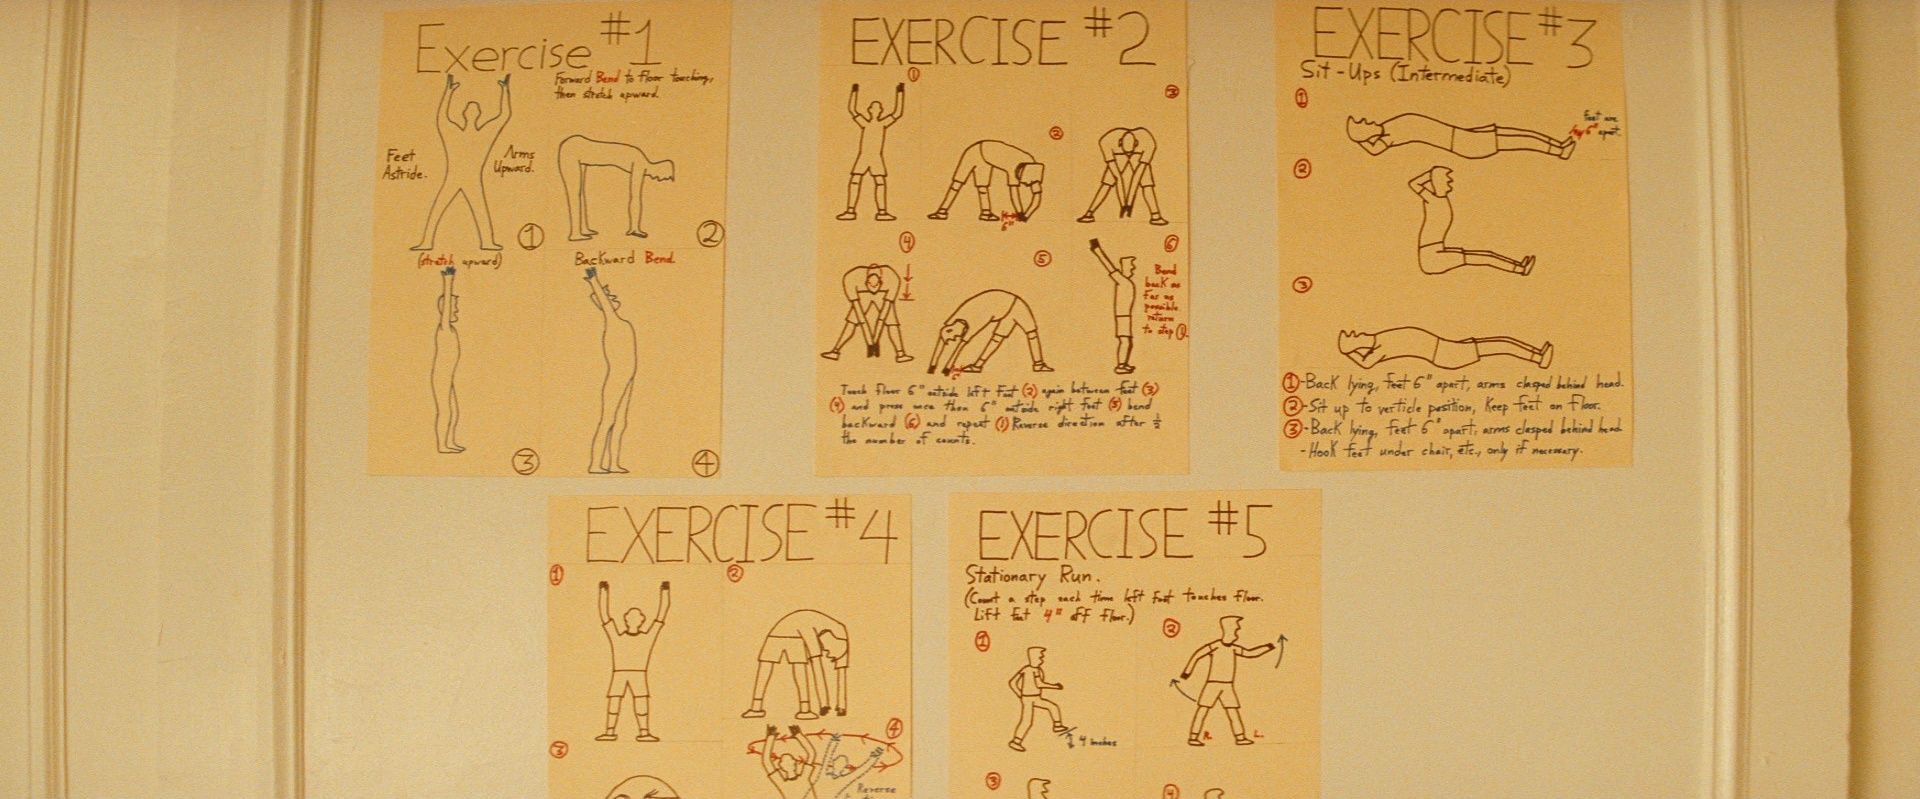 Exercise #1
Forward Bend to floor touching,
then stretch upward.
Feet
Astride.
Arms
Upward.
1
2
(stretch upward)
Backward Bend.
3
4
EXERCISE #2
1
2
3
4
5
6
6"
Bend
back as
far as
possible.
return
to step 1.
6"
Touch floor 6" outside left foot (2) again between feet (3)
(4) and press once then 6" outside right foot (5) bend
backward (6) and repeat (1) Reverse direction after 1/2
the number of counts.
EXERCISE #3
Sit-Ups (Intermediate)
1
Feet are
6" apart.
2
3
1-Back lying, feet 6" apart, arms clasped behind head.
2-Sit up to verticle position, Keep feet on floor.
3-Back lying, feet 6" apart, arms clasped behind head
-Hook feet under chair, etc., only if necessary.
EXERCISE #4
1
2
3
4
Reverse
EXERCISE #5
Stationary Run.
(Count a step each time left foot touches floor.
Lift feet 4" off floor.)
1
2
4 inches
R.
L.
3
4